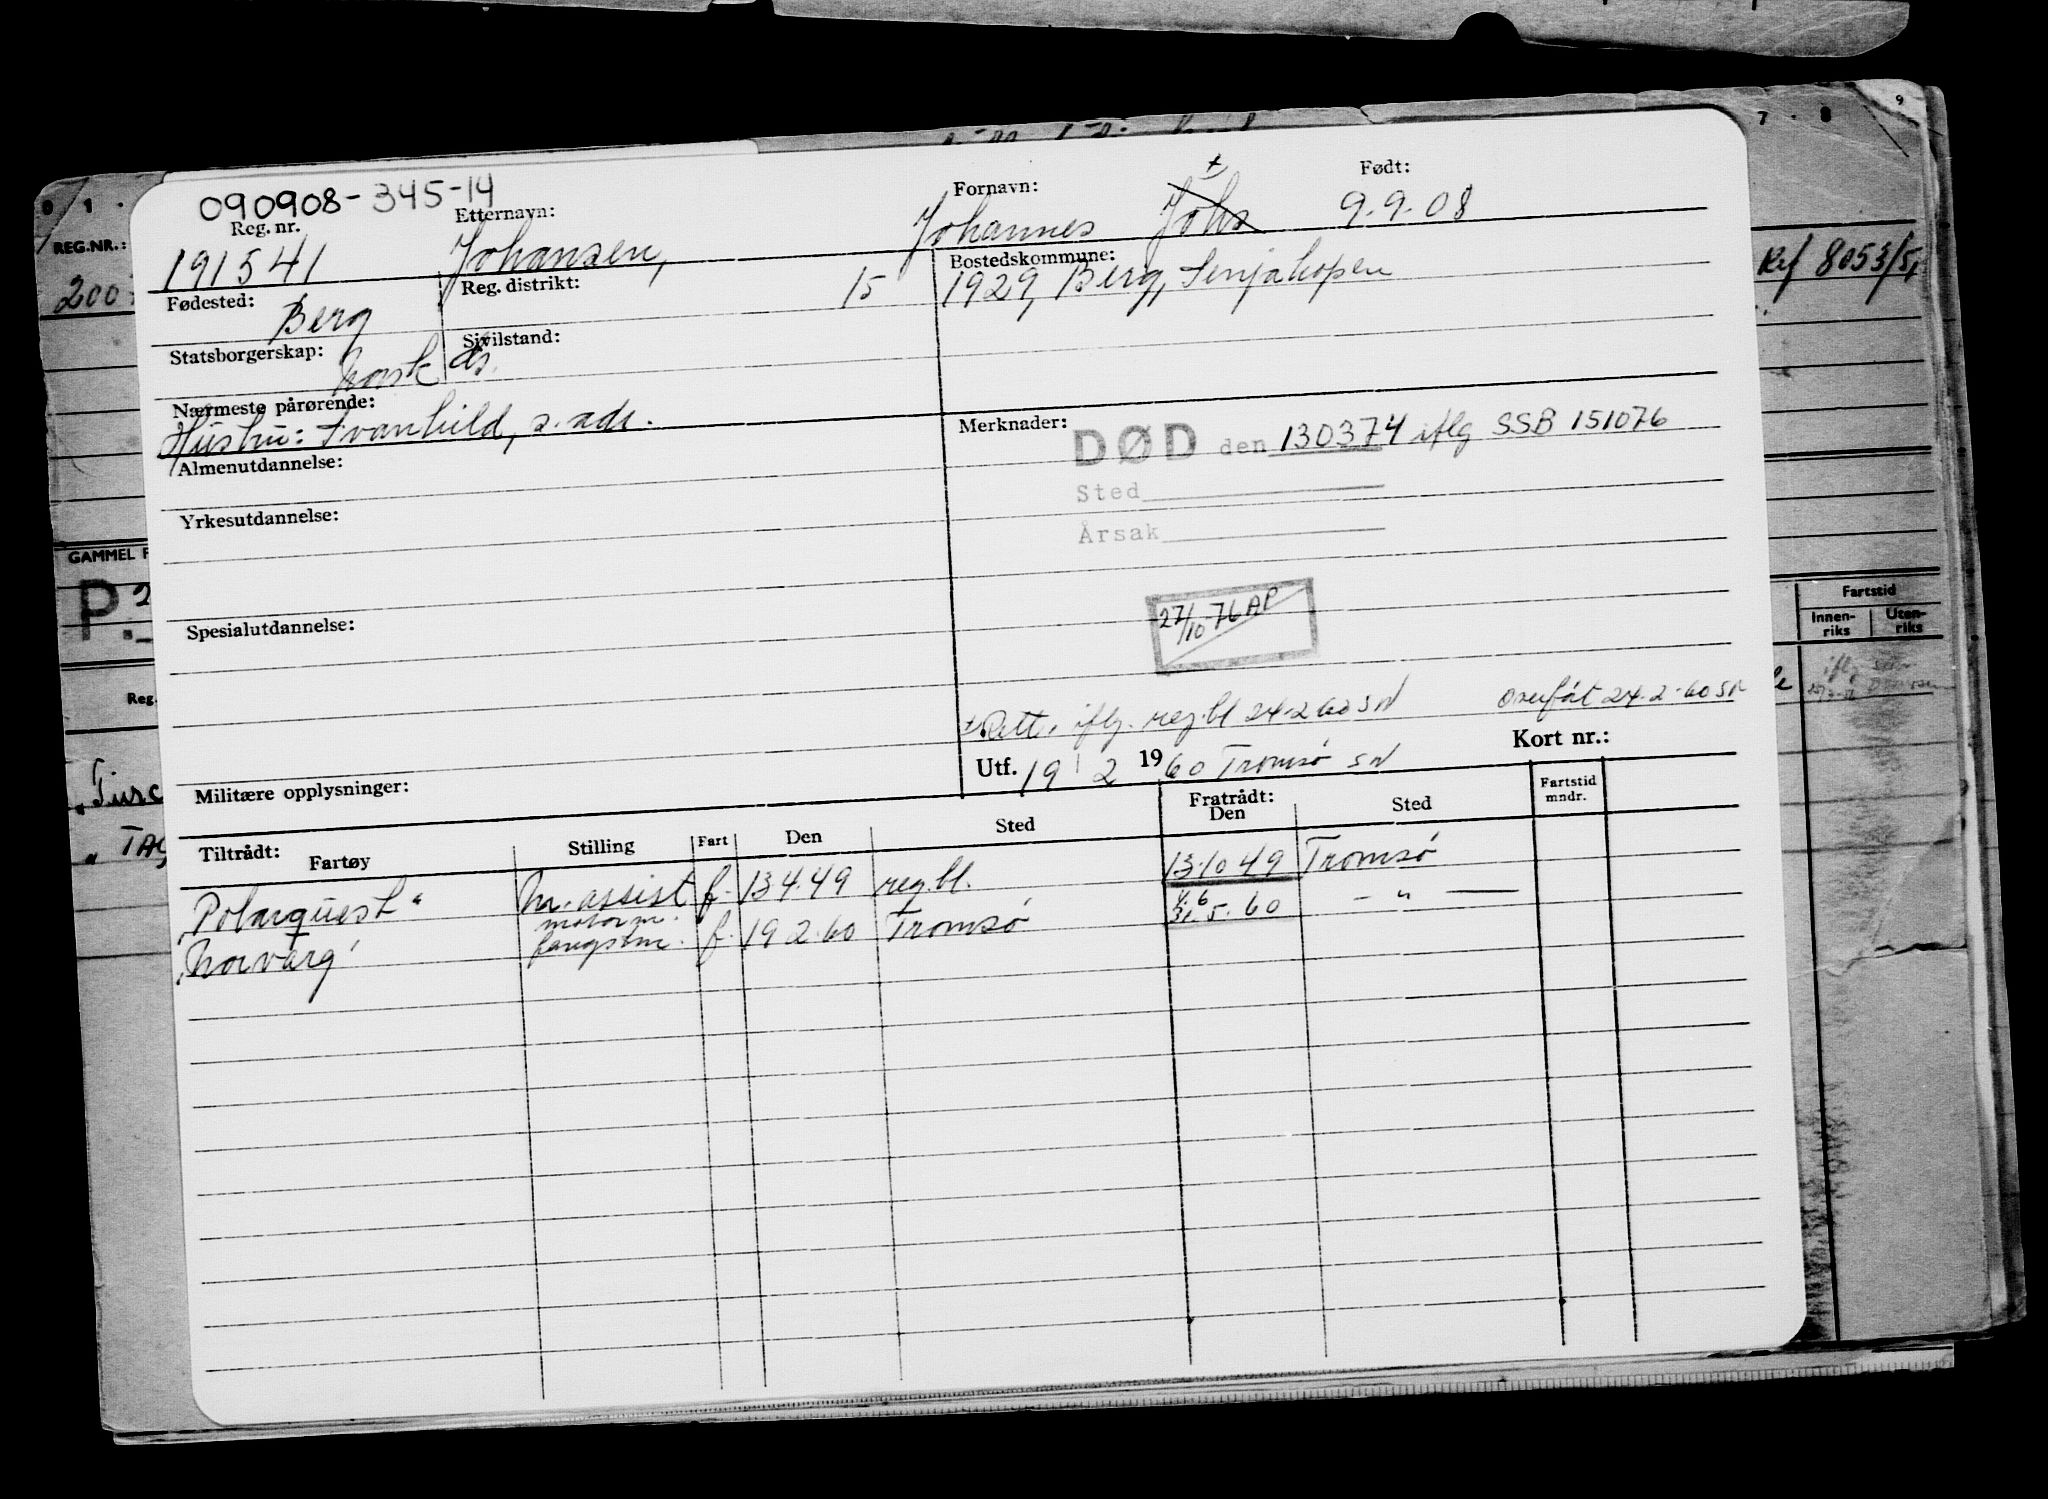 7 - 8 9
0 1 .
090908-345-14
Reg. nr. Etternavn: Fornavn: ± Født:
191541 Johansen, Johannes Johs 9.9.08
REG.NR.:
200
Fødested: Reg. distrikt: 15 Bostedskommune:
Berg 1929, Berg, Senjahopen
Ref 8053/5,
Statsborgerskap: Sivilstand:
Norsk
Nærmeste pårørende:
Hustru: Svanhild, s. adr.
Merknader:
DØD den 130374 iflg SSB 151076
Sted
Årsak
Almenutdannelse:
Yrkesutdannelse:
GAMMEL F
P. 2
Spesialutdannelse:
27/10-76 AP
Fartstid
Innen-riks Uten-riks
iflg
Reg.
± Rett. iflg. reg.bl 24.2 60 SN Overført 24.2.60 SN
Utf. 19 / 2 1960 Tromsø SN Kort nr.:
Militære opplysninger:
Tiltrådt: Fartøy Stilling Fart Den Sted Fratrådt: Den Sted Fartstid mndr.
"Polarquest" m. assist f. 13 4.49 reg.bl. 13.10 49 Tromsø
"Norvarg" motorm. fangstm. f. 19 2.60 Tromsø 4.6 31.5.60 - " -